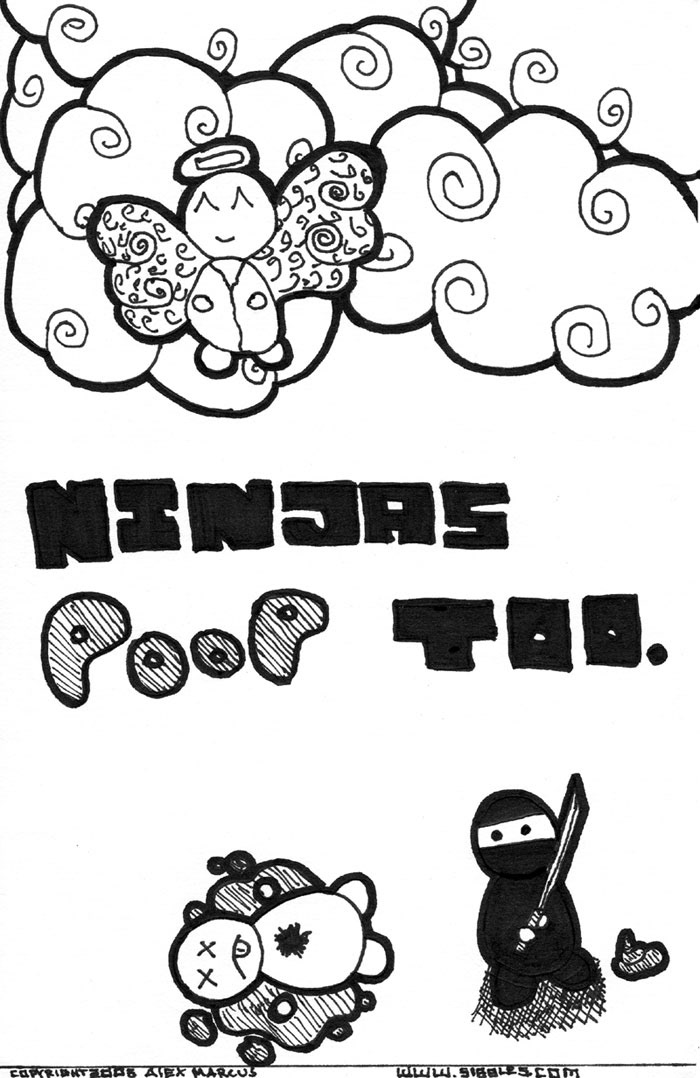 NINJAS
POOP TOO.
COPYRIGHT 2008 ALEX MARCUS WWW.SIGGLES.COM